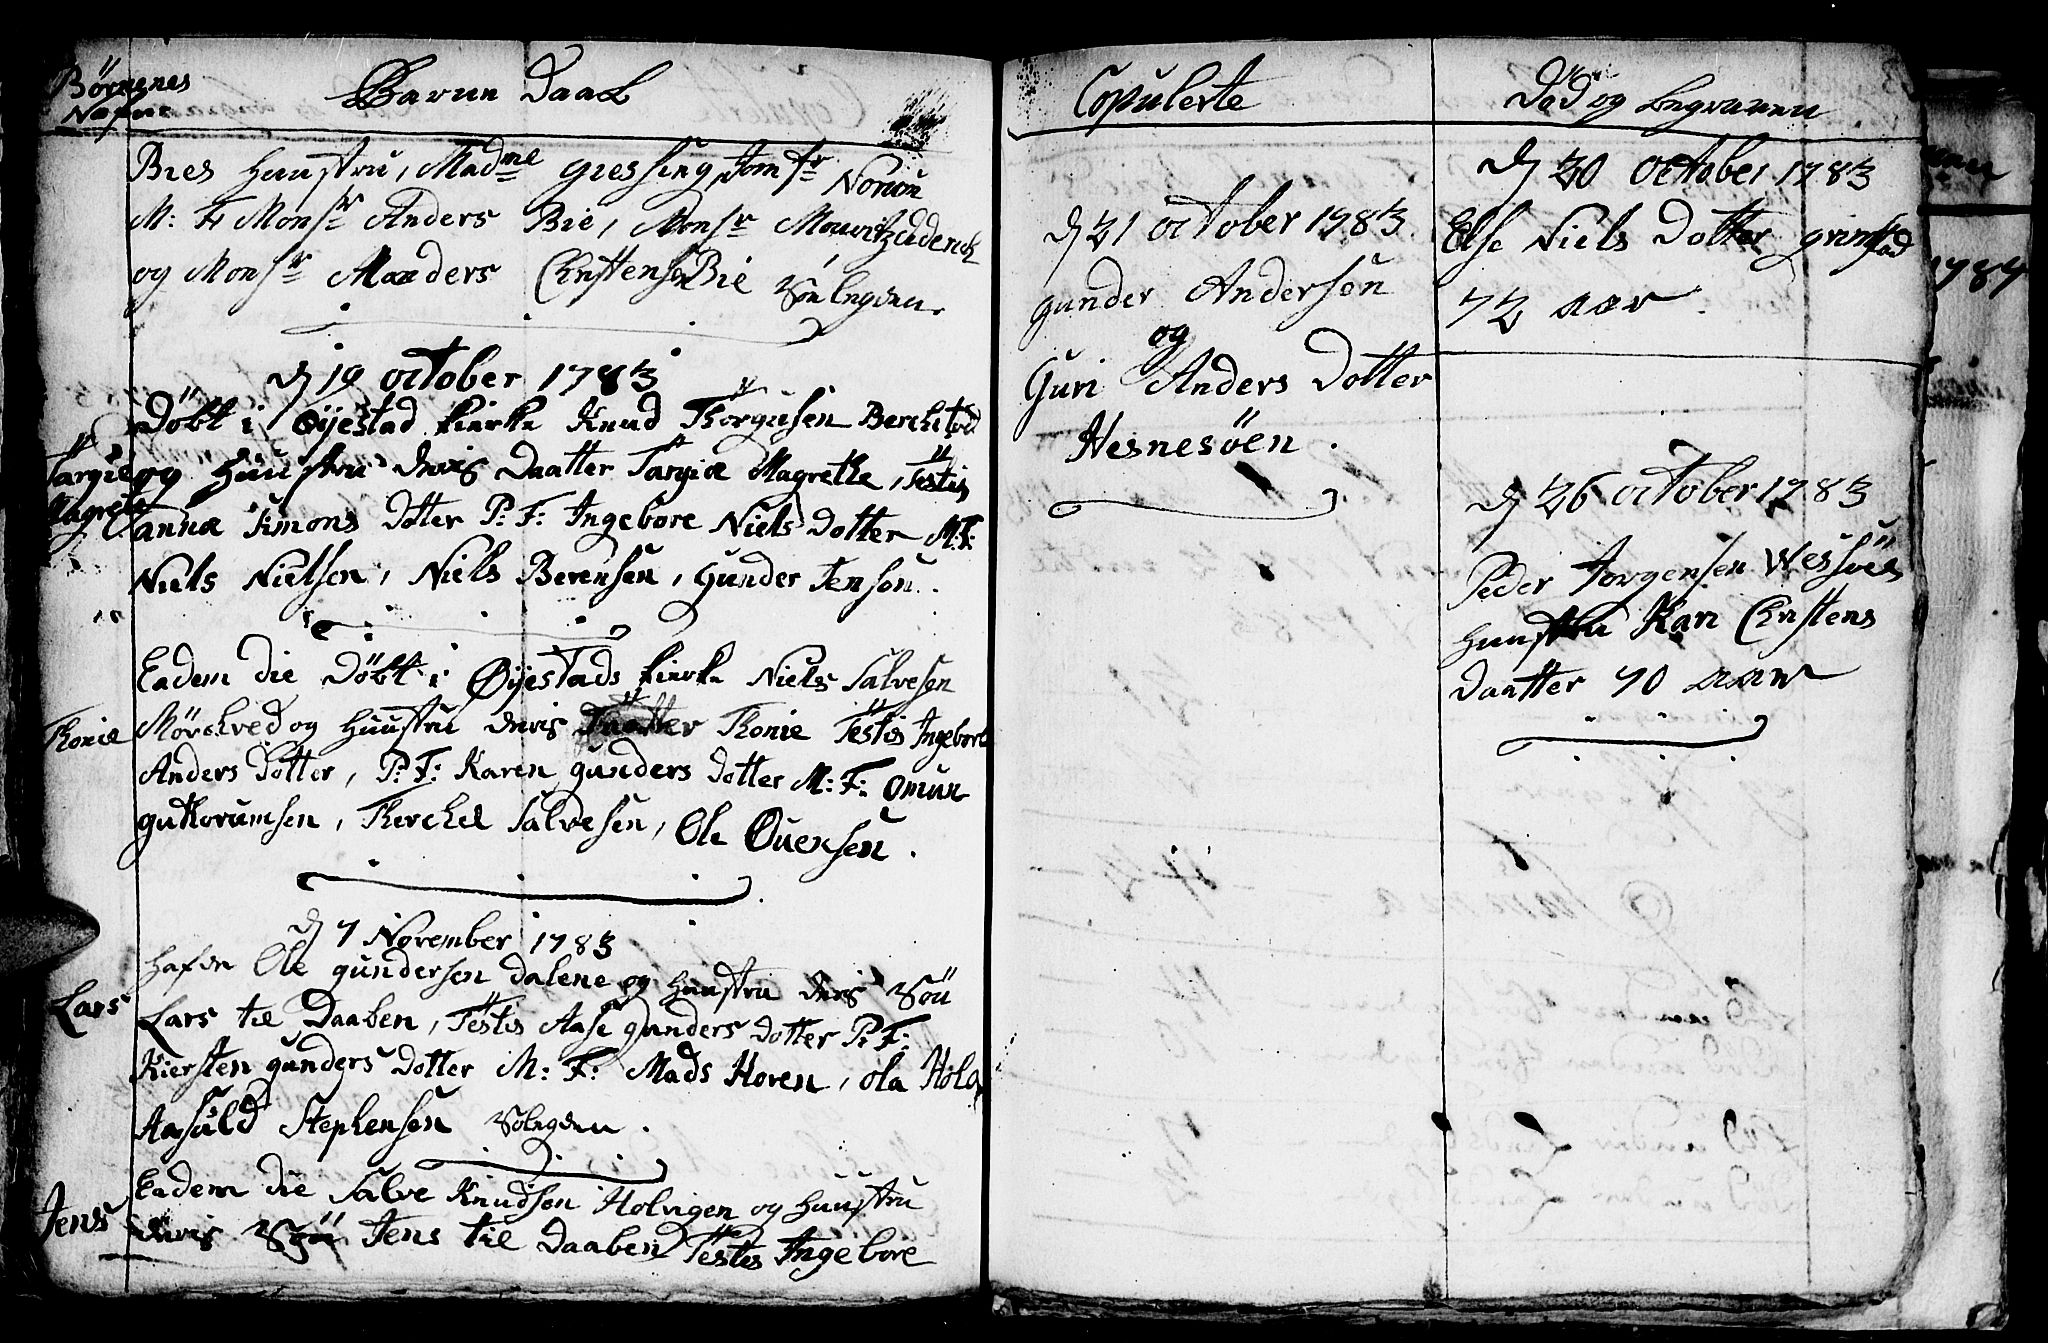 Börnenes
Nafne
Barne Daab
Bies Huustru, Madme giessing, Jomfr Norum
M: F: Monsr Anders Bie, Monsr Mouritz Diderich
og Monsr Anders Christensen Bie Sölugden.
D 19 October 1783
Döbt i Øÿestad kierke Knud Thorgusen
og Huustru deris Daatter Targie Magrethe, Testis
Targie
Magrete
anna Simons Dotter P: F: Ingebore Niels Dotter M: F:
Niels Nielsen, Niels Berensen, Gunder Jensen.
Eadem die Döbt i Øÿestads kierke Niels Salvesen
Mörchved og Huustru deris Daatter Thonie Testis Ingebore
Thonie
Anders Dotter, P: F: Karen gunders Dotter M: F: Omun
guthorumsen, Therchel Salvesen, Ole Ouensen.
D 7 November 1783
Hafde Ole gundersen Dalene og Huustru deris Sön
Lars
Lars til Daaben, Testis Aase gunders Dotter P: F:
Kiersten gunders Dotter M: F: Mads Horen, ola
Aasuld Stephensen
Eadem die Salve Knudsen Holvigen og Huustru
Jens
deris Sön Jens til Daaben Testis Ingebore
Copulerte
D 21 October 1783
gunder Andersen
og
Guri Anders Dotter
Hesnesöen.
Död og begraven
D 20 October 1783
Else Niels Dotter grimstad
72 aar.
D 26 October 1783
Peder Jorgensen Wessöes
Huustru Kari Christens
Daatter 70 aar
1784